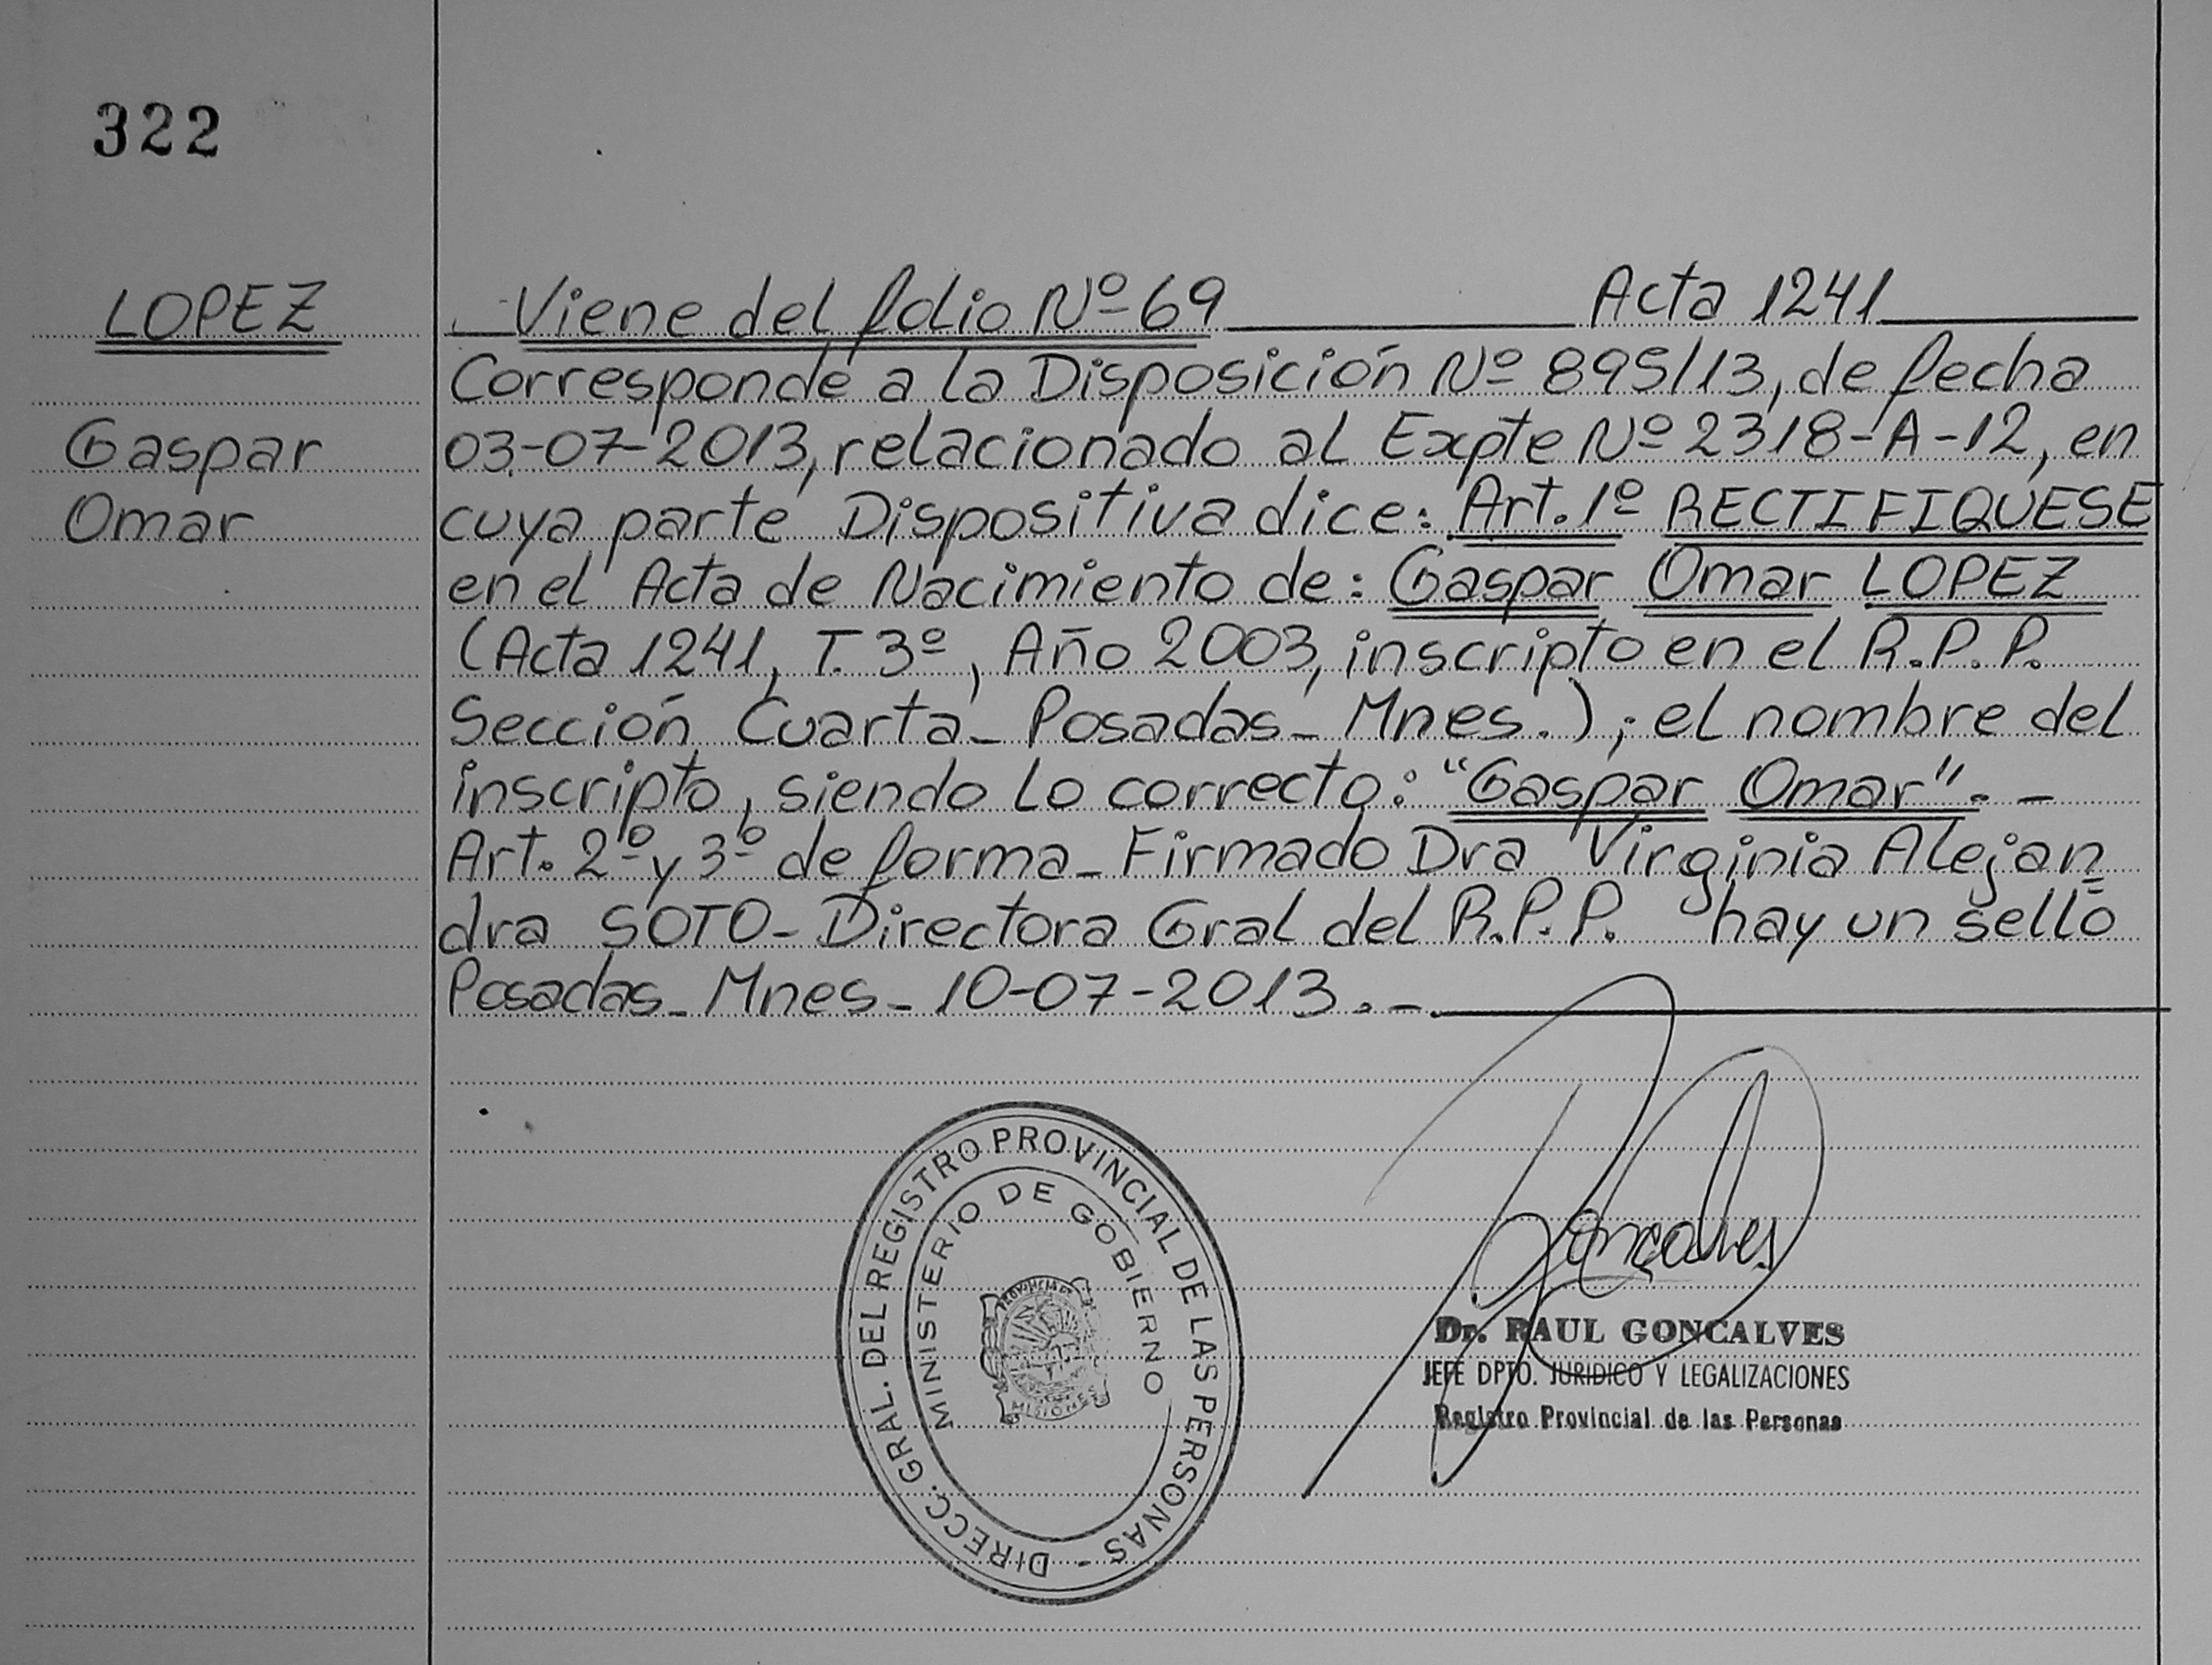 322
LOPEZ
Gaspar
Omar
Viene del folio Nº 69 Acta 1241
Corresponde a la Disposición Nº 895/13, de fecha
03-07-2013, relacionado al Expte Nº 2318-A-12, en
cuya parte Dispositiva dice: Art. 1º RECTIFIQUESE
en el Acta de Nacimiento de: Gaspar Omar LOPEZ
(Acta 1241, T. 3º, Año 2003, inscripto en el R.P.P.
Sección Cuarta_ Posadas_ Mnes.); el nombre del
inscripto, siendo lo correcto: "Gaspar Omar". -
Art. 2º y 3º de forma_ Firmado Dra Virginia Alejan=
dra SOTO- Directora Gral del R.P.P. hay un sello
Posadas_ Mnes_ 10-07-2013. -
DIRECC. GRAL. DEL REGISTRO PROVINCIAL DE LAS PERSONAS -
MINISTERIO DE GOBIERNO
PROVINCIA DE
MISIONES
Goncalves
Dr. RAUL GONCALVES
JEFE DPTO. JURIDICO Y LEGALIZACIONES
Registro Provincial de las Personas